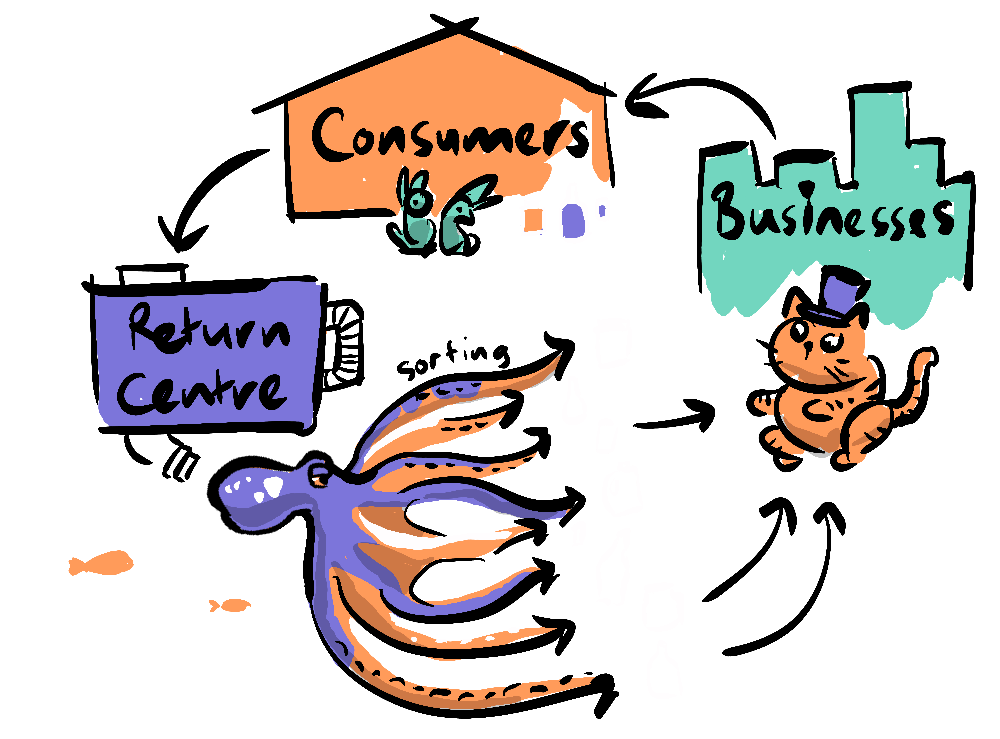 Consumers
Businesses
Return
Centre
sorting